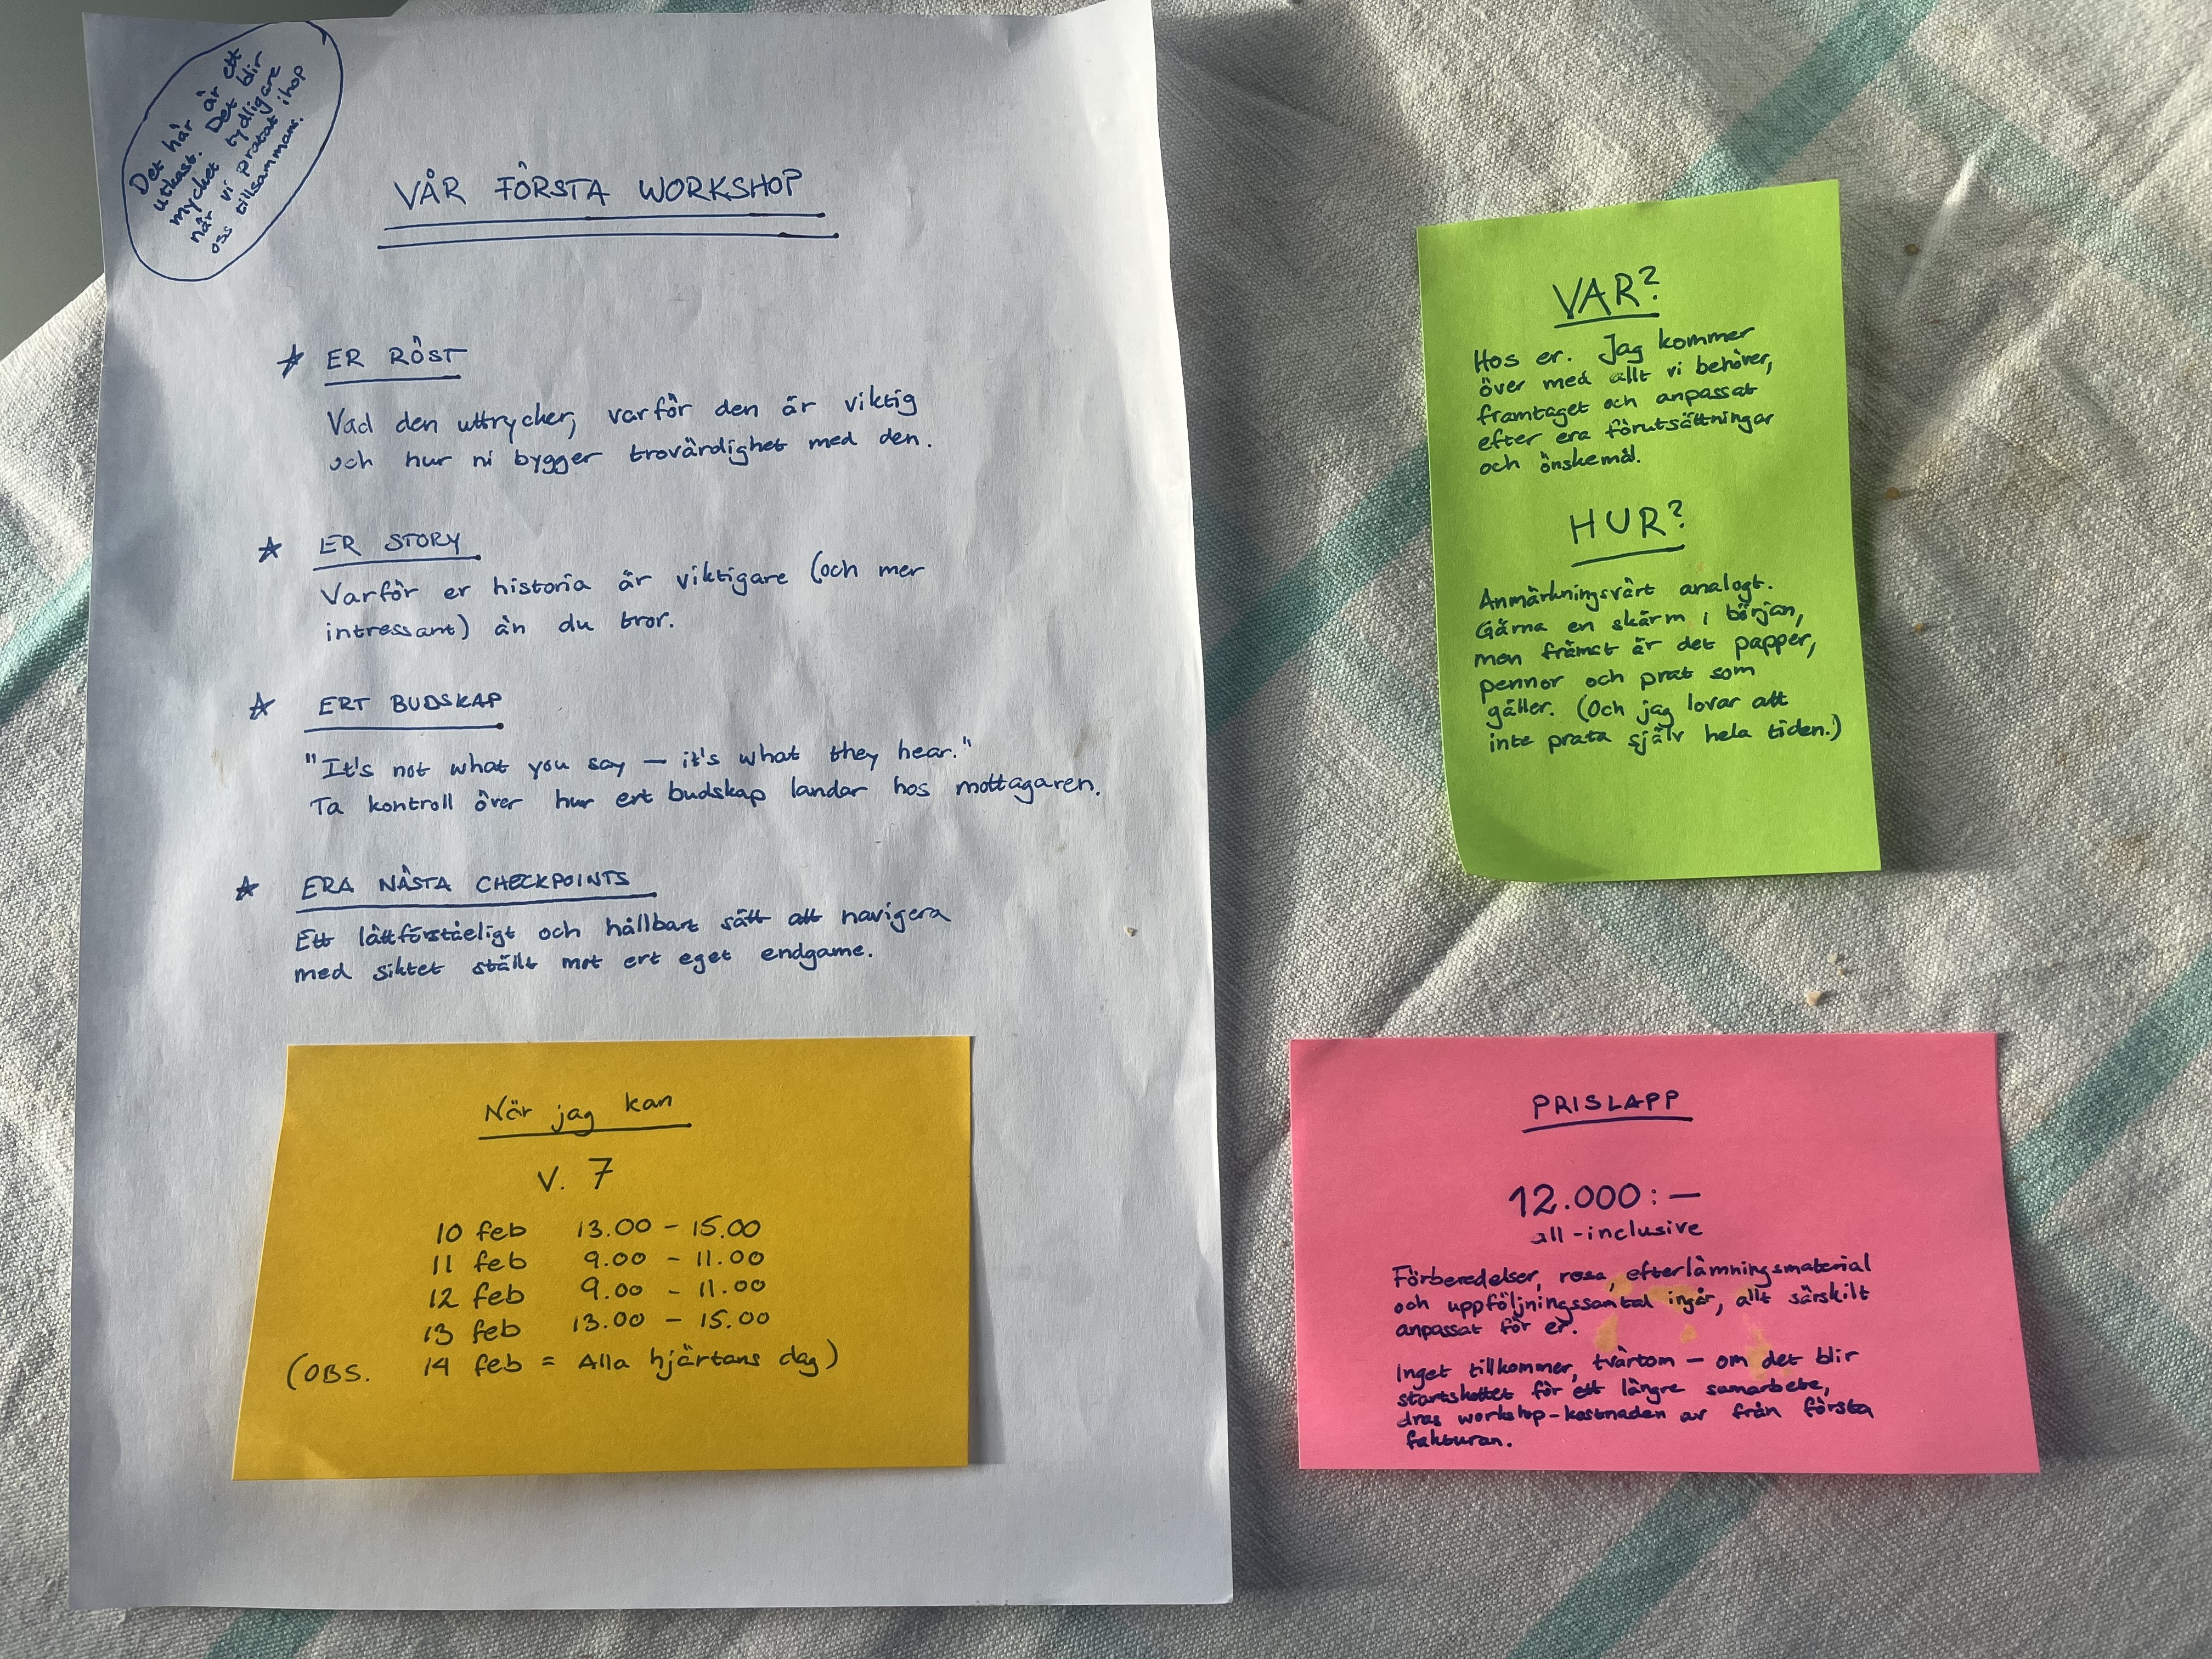 Det här är ett
utkast. Det blir
mycket tydligare
när vi pratat ihop
oss tillsammans.
VÅR FÖRSTA WORKSHOP
☆ ER RÖST
Vad den uttrycker, varför den är viktig
och hur ni bygger trovärdighet med den.
☆ ER STORY
Varför er historia är viktigare (och mer
intressant) än du tror.
☆ ERT BUDSKAP
"It's not what you say — it's what they hear."
Ta kontroll över hur ert budskap landar hos mottagaren.
☆ ERA NÄSTA CHECKPOINTS
Ett lättförståeligt och hållbart sätt att navigera
med siktet ställt mot ert eget endgame.
När jag kan
V. 7
10 feb 13.00 - 15.00
11 feb 9.00 - 11.00
12 feb 9.00 - 11.00
13 feb 13.00 - 15.00
(OBS. 14 feb = Alla hjärtans dag)
VAR?
Hos er. Jag kommer
över med allt vi behöver,
framtaget och anpassat
efter era förutsättningar
och önskemål.
HUR?
Anmärkningsvärt analogt.
Gärna en skärm i början,
men främst är det papper,
pennor och prat som
gäller. (Och jag lovar att
inte prata själv hela tiden.)
PRISLAPP
12.000:—
all-inclusive
Förberedelser, resa, efterlämningsmaterial
och uppföljningssamtal ingår, allt särskilt
anpassat för er.
Inget tillkommer, tvärtom — om det blir
startskottet för ett längre samarbete,
dras workshop-kostnaden av från första
fakturan.